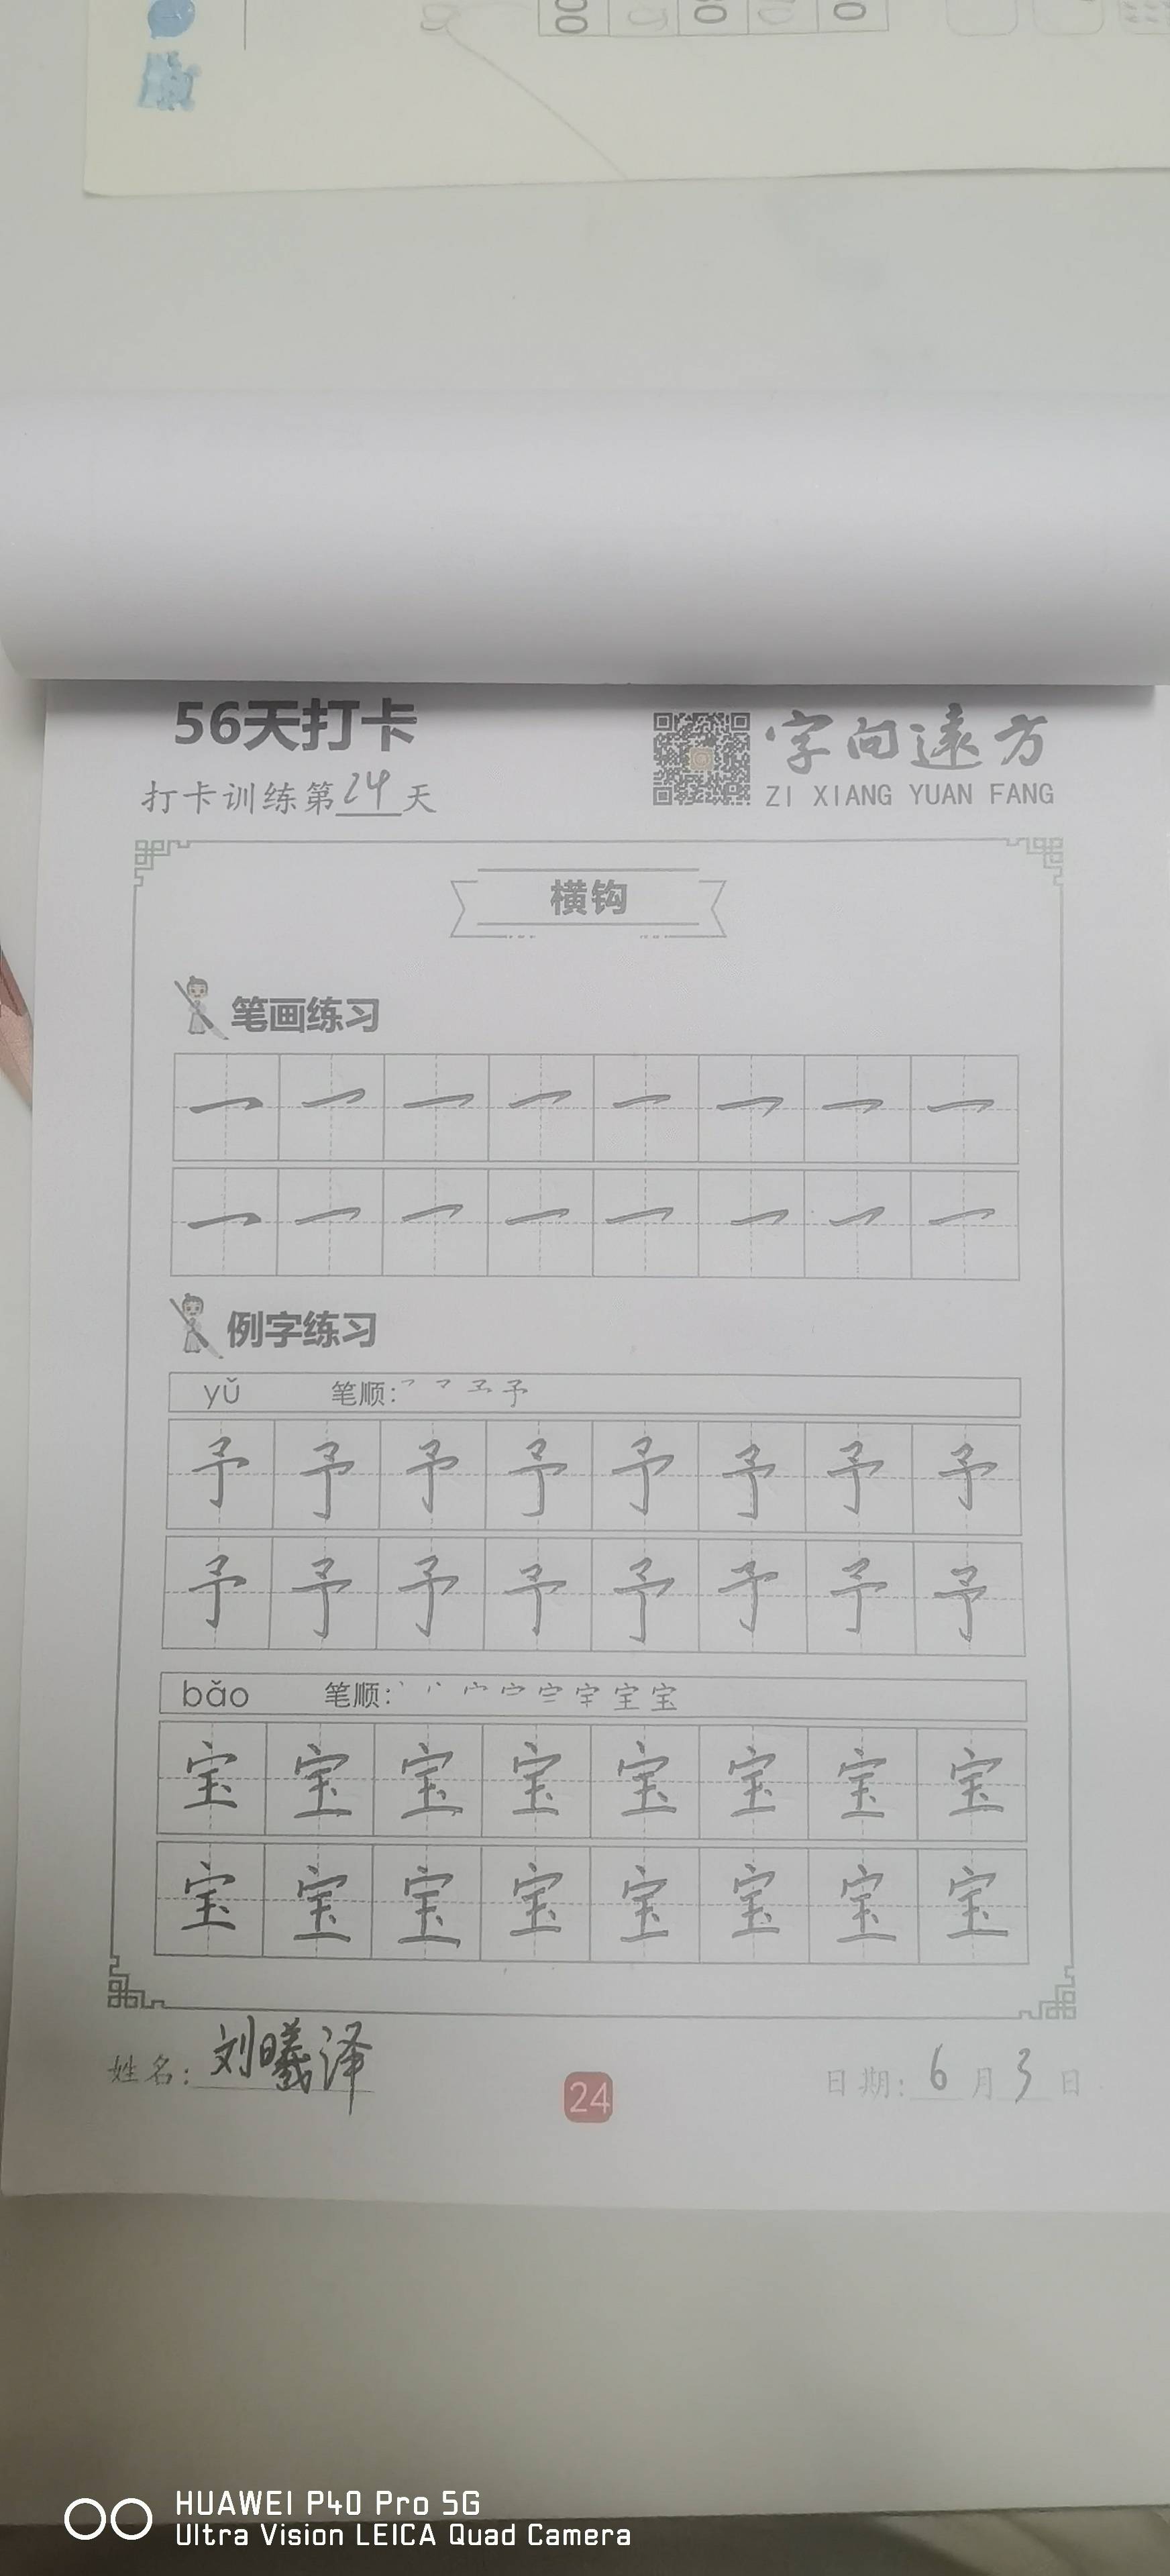 56天打卡
字向遠方
打卡训练第24天
ZI XIANG YUAN FANG
横钩
笔画练习
例字练习
yǔ 笔顺:
予 予 予 予 予 予 予 予
予 予 予 予 予 予 予 予
bǎo 笔顺:
宝 宝 宝 宝 宝 宝 宝 宝
宝 宝 宝 宝 宝 宝 宝 宝
姓名: 刘曦泽
24
日期: 6月3日
HUAWEI P40 Pro 5G
Ultra Vision LEICA Quad Camera